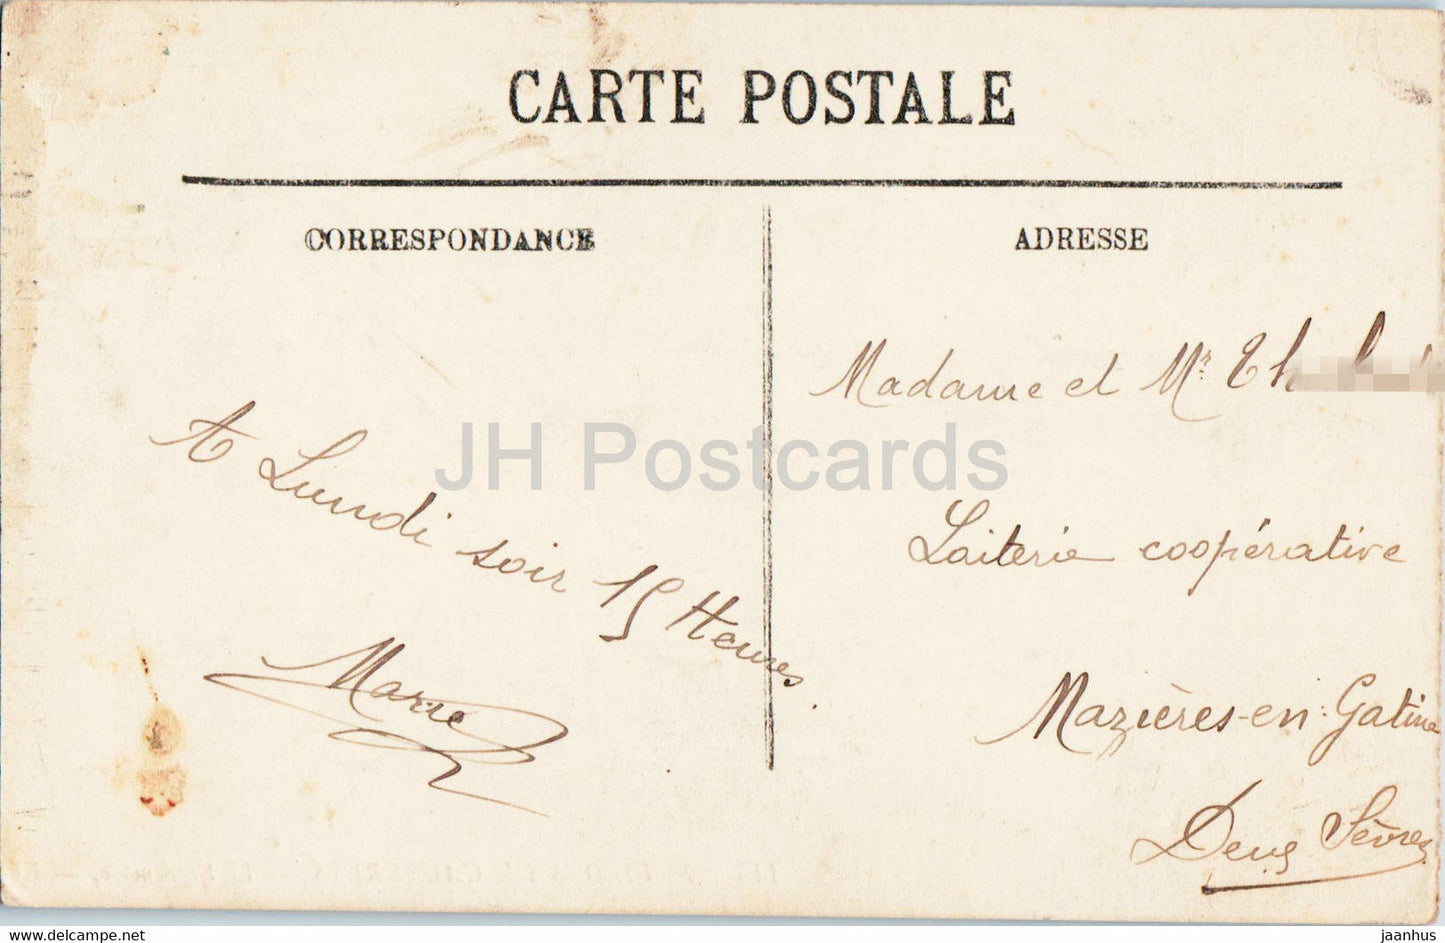 CARTE POSTALE
CORRESPONDANCE
ADRESSE
A Lundi soir 15 Heures.
Marie
Madame et Mr
Laiterie coopérative
Mazières-en-Gatine
Deux Sèvres
JH Postcards
www.delcampe.net
jaanhus